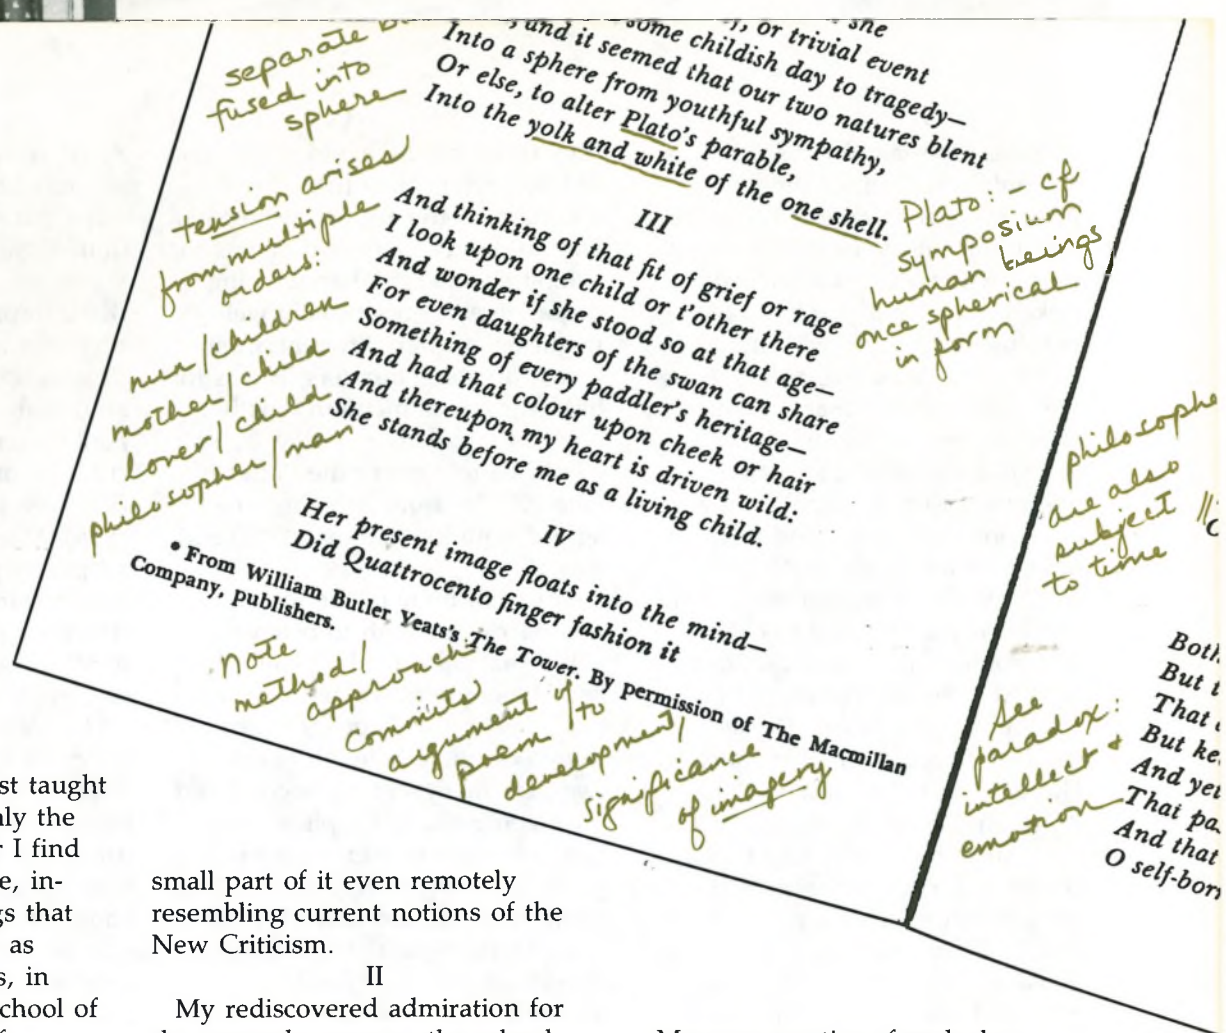 she
, or trivial event
some childish day to tragedy—
, and it seemed that our two natures blent
Into a sphere from youthful sympathy,
Or else, to alter Plato's parable,
Into the yolk and white of the one shell.
III
And thinking of that fit of grief or rage
I look upon one child or t'other there
And wonder if she stood so at that age—
For even daughters of the swan can share
Something of every paddler's heritage—
And had that colour upon cheek or hair
And thereupon my heart is driven wild:
She stands before me as a living child.
IV
Her present image floats into the mind—
Did Quattrocento finger fashion it
• From William Butler Yeats's The Tower. By permission of The Macmillan
Company, publishers.
separate
fused into
sphere
tension arises
from multiple
orders:
men/children
mother/child
lover/child
philosopher/man
Plato: - cf
symposium
human beings
once spherical
in form
note
method/
approach
commits
argument of
poem to
development/
significance
of imagery
philosophe
are also
subject
to time
See
paradox:
intellect &
emotion
Both
But i
That
But ke
And yet
That pa
And that
O self-born
st taught
ly the
r I find
e, in-
gs that
as
s, in
chool of
small part of it even remotely
resembling current notions of the
New Criticism.
II
My rediscovered admiration for